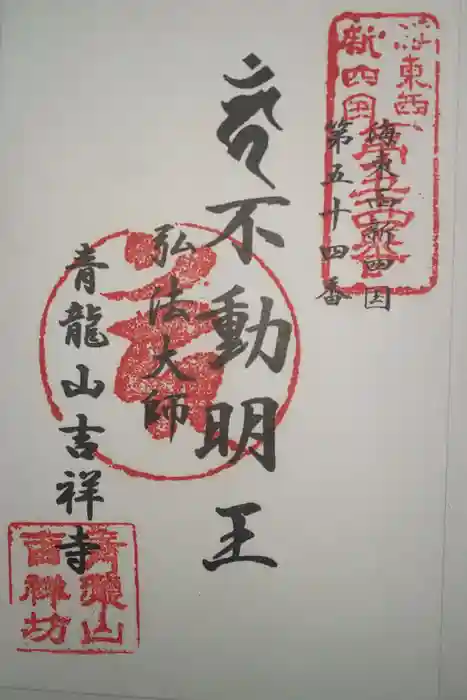 海東西
新四国
五十四番
海東西新四国
第五十四番
不動明王
弘法大師
青龍山吉祥寺
青龍山
吉祥坊